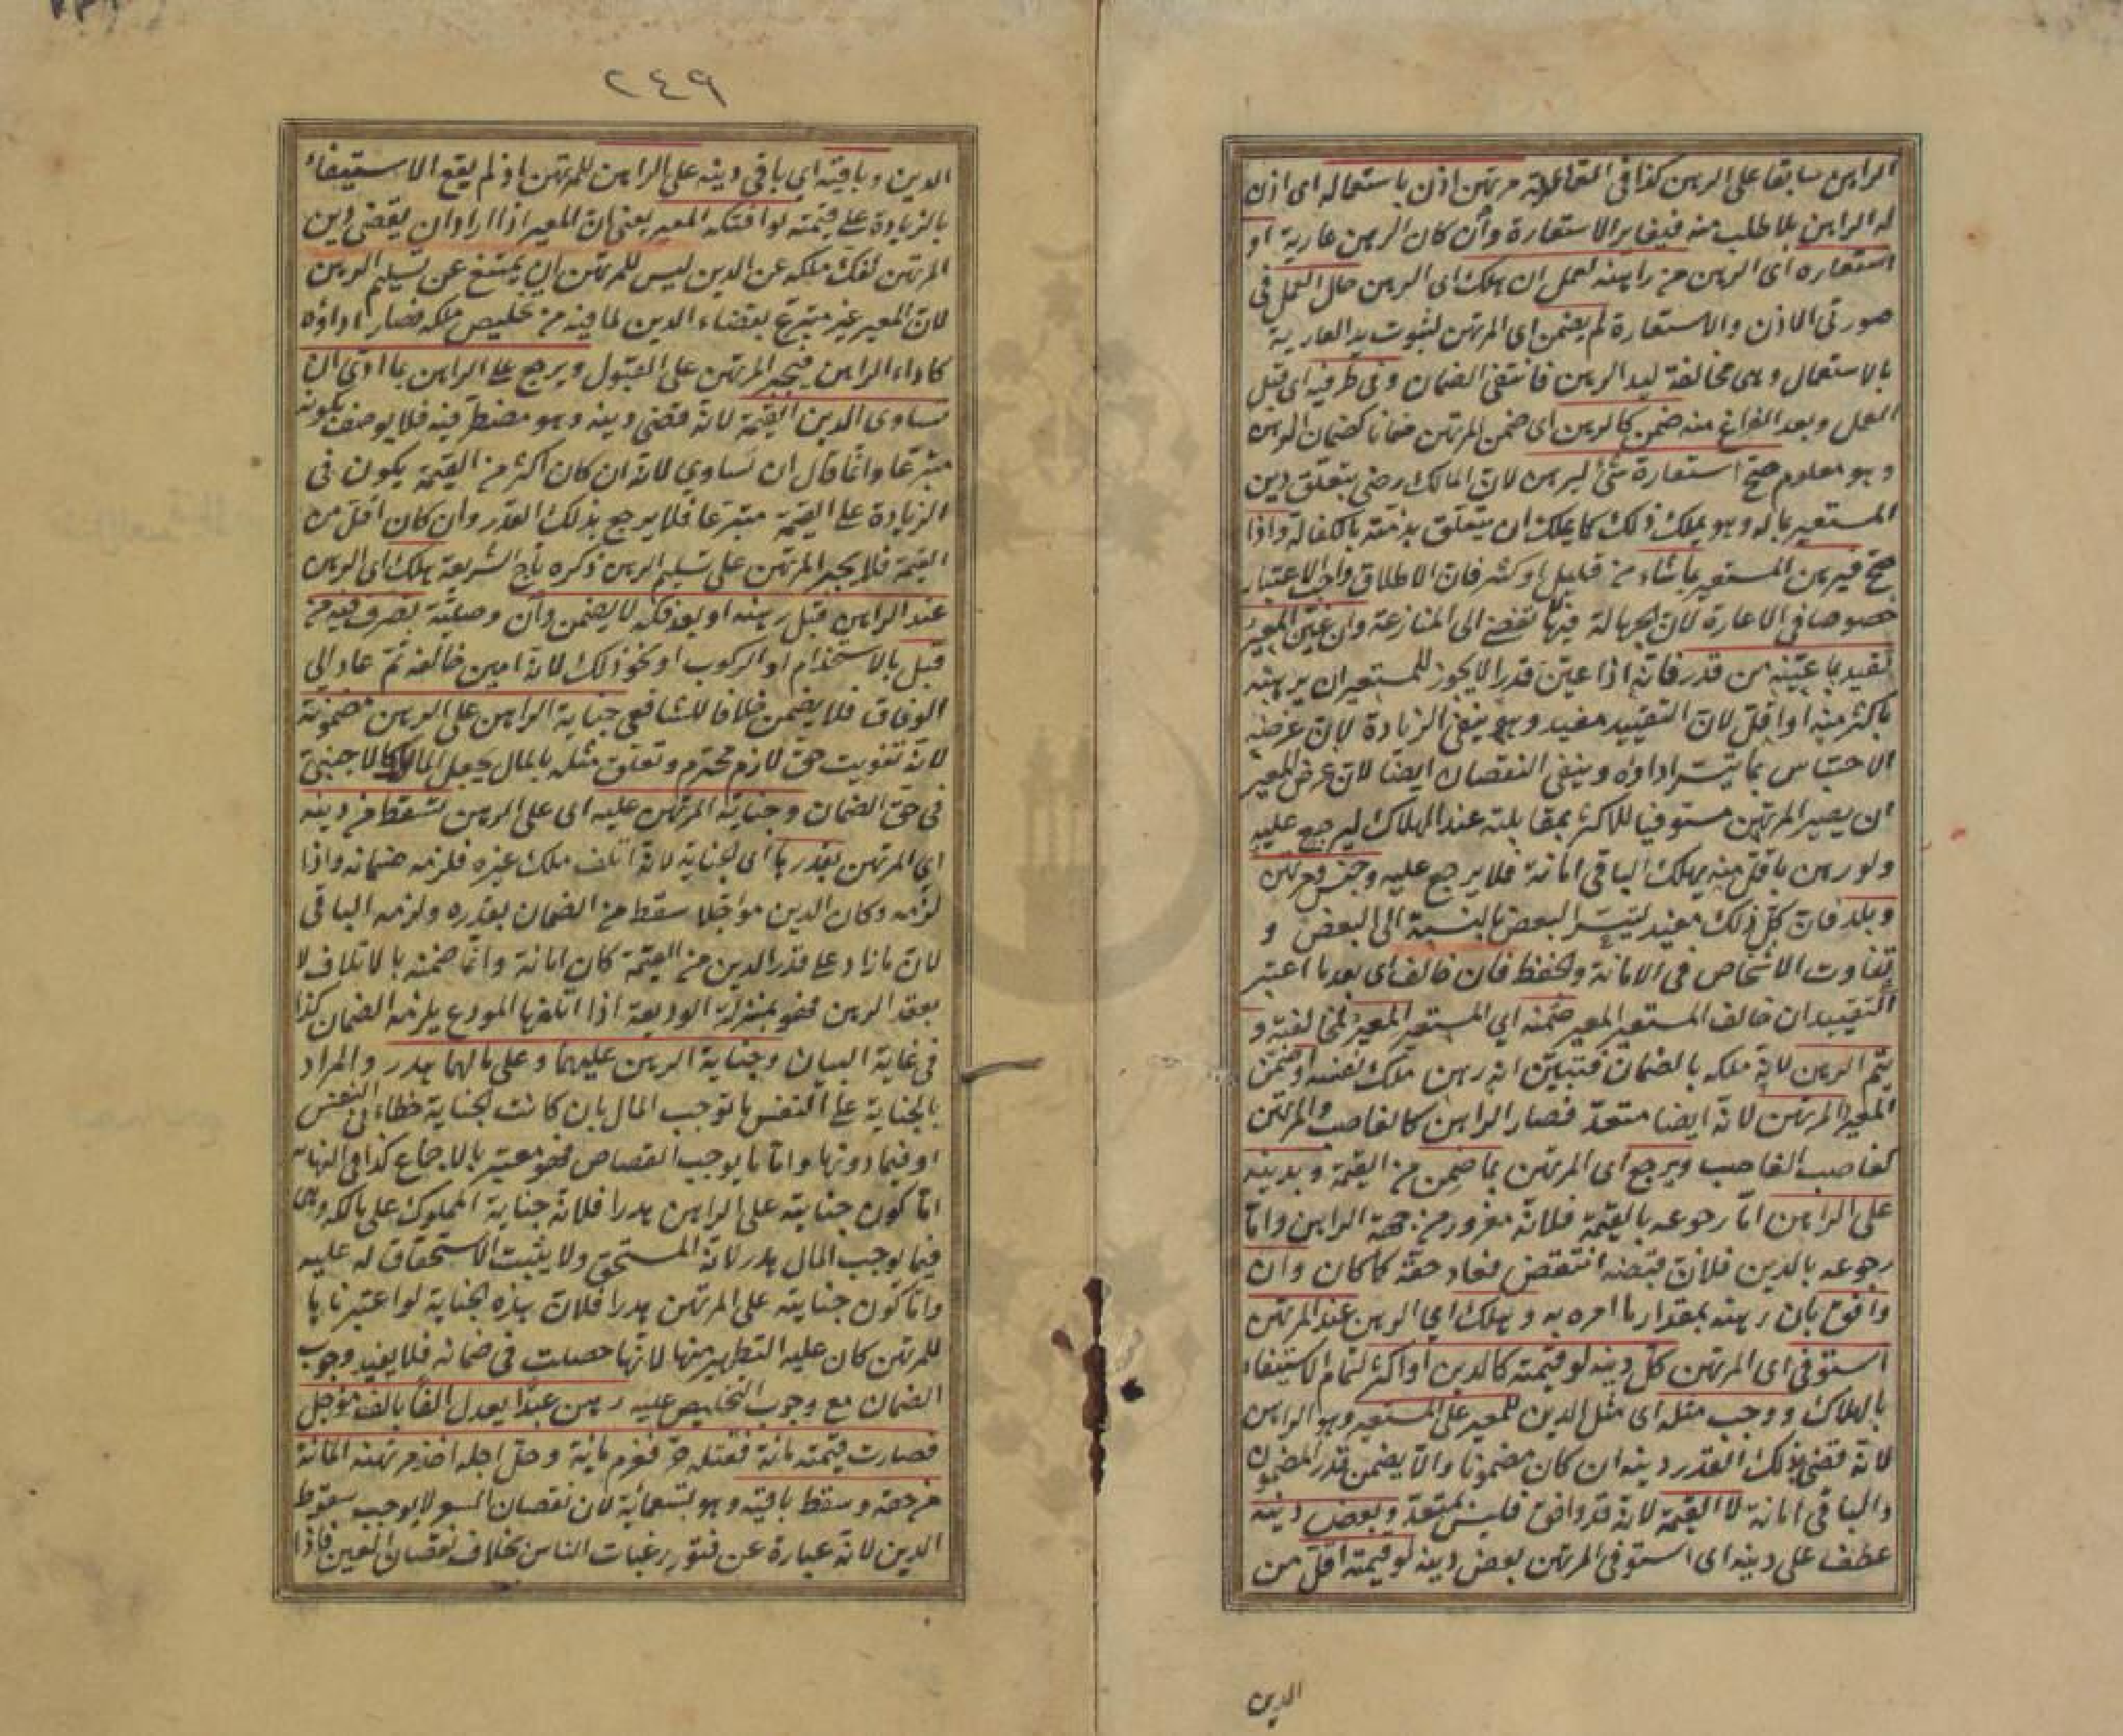 الراهن سابقا على الرهن كذا فى القاعدية مرتهن اذن باستعماله اى اذن
له الراهن بلا طلب منه فيغاير الاستعارة وأن كان الرهن عارية او
استعاره اى الرهن من راهنه لعمل ان هلك اى الرهن حال العمل فى
صورتى الاذن والاستعارة لم يضمن اى المرتهن لثبوت يد العارية
بالاستعمال وهى مخالفة ليد الرهن فانتفى الضمان وفى طرفيه اى قبل
العمل وبعد الفراغ منه ضمن كالرهن اى ضمن المرتهن ضمانا كضمان الرهن
وهو معلوم صح استعارة شئ ليرهن لان المالك رضى بتعلق دين
المستعير بماله وهو يملك ذلك كما يملك ان يتعلق بذمته بالكفالة واذا
صح فيرهن المستعير بما شاء من قليل او كثير فان الاطلاق واجب الاعتبار
خصوصا فى الاعارة لان الجهالة فيها لا تفضى الى المنازعة وان عين المعير
تقيد بما عينه من قدر فانه اذا عين قدرا لا يجوز للمستعير ان يرهنه
باكثر منه او اقل لان التقييد مفيد وهو ينفى الزيادة لان غرضه
الاحتباس بما تيسر اداؤه وينفى النقصان ايضا لان غرض المعير
ان يصير المرتهن مستوفيا للاكثر بمقابلته عند الهلاك ليرجع عليه
ولو رهن باقل منه يهلك الباقى امانة فلا يرجع عليه وجنس ومرتهن
وبلد فان كل ذلك مفيد لتيسر البعض بالنسبة الى البعض و
تفاوت الاشخاص فى الامانة والحفظ فان خالف اى بعد ما اعتبر
التقييد ان خالف المستعير المعير ضمنه اى المستعير المعير لمخالفته و
يتم الرهن لانه ملكه بالضمان فتبين انه رهن ملك نفسه او ضمن
المعير المرتهن لانه ايضا متعد فصار الراهن كالغاصب والمرتهن
كغاصب الغاصب ويرجع اى المرتهن بما ضمن من القيمة وبدينه
على الراهن اما رجوعه بالقيمة فلانه مغرور من جهة الراهن واما
رجوعه بالدين فلان قبضه انتقض فعاد حقه كما كان وان
وافق بان رهنه بمقدار ما امره به وهلك اى الرهن عند المرتهن
استوفى اى المرتهن كل دينه لو قيمته كالدين او اكثر لتمام الاستيفاء
بالهلاك ووجب مثله اى مثل الدين للمعير على المستعير وهو الراهن
لانه قضى بذلك القدر دينه ان كان مضمونا والا يضمن قدر المضمون
والباقى امانة لا القيمة لانه قد وافق فليس بمتعد وبعض دينه
عطف على دينه اى استوفى المرتهن بعض دينه لو قيمته اقل من
الدين
٢٤٩
الدين وباقيه اى باقى دينه على الراهن للمرتهن اذ لم يقع الاستيفاء
بالزيادة على قيمته لو افتكه المعير يعنى ان المعير اذا اراد ان يقضى دين
المرتهن لفك ملكه عن الدين ليس للمرتهن ان يمتنع عن تسليم الرهن
لان المعير غير متبرع بقضاء الدين لما فيه من تخليص ملكه فصار اداؤه
كاداء الراهن فيجبر المرتهن على القبول ويرجع على الراهن بما ادى ان
تساوى الدين القيمة لانه قضى دينه وهو مضطر فيه فلا يوصف بكونه
متبرعا وانما قال ان تساوى لانه ان كان اكثر من القيمة يكون فى
الزيادة على القيمة متبرعا فلا يرجع بذلك القدر وان كان اقل من
القيمة فلا يجبر المرتهن على تسليم الرهن ذكره تاج الشريعة هلك اى الرهن
عند الراهن قبل رهنه او بعد فكه لا يضمن وأن وصلية تصرف فيه من
قبل بالاستخدام او الركوب او نحو ذلك لانه امين خالف ثم عاد الى
الوفاق فلا يضمن خلافا للشافعى جناية الراهن على الرهن مضمونة
لانه تفويت حق لازم محترم وتعلق مثله بالمال يجعل المالك كالاجنبى
فى حق الضمان وجناية المرتهن عليه اى على الرهن تسقط من دينه
اى المرتهن بقدرها اى الجناية لانه اتلف ملك غيره فلزمه ضمانه واذا
لزمه وكان الدين مؤجلا سقط من الضمان بقدره ولزمه الباقى
لان ما زاد على قدر الدين من القيمة كان امانة وانما ضمنه بالاتلاف لا
بعقد الرهن فهو بمنزلة الوديعة اذا اتلفها المودع يلزمه الضمان كذا
فى غاية البيان وجناية الرهن عليهما وعلى مالهما هدر والمراد
بالجناية على النفس ما توجب المال بان كانت الجناية خطاء فى النفس
او فيما دونها واما ما يوجب القصاص فهو معتبر بالاجماع كذا فى النهاية
اما كون جنايته على الراهن هدرا فلانه جناية المملوك على مالكه وهى
فيما يوجب المال هدر لانه المستحق ولا يثبت الاستحقاق له عليه
واما كون جنايته على المرتهن هدرا فلان هذه الجناية لو اعتبرناها
للمرتهن كان عليه التطهير منها لانها حصلت فى ضمانه فلا يفيد وجوب
الضمان مع وجوب التخليص عليه رهن عبدا يعدل الفا بالف مؤجل
فصارت قيمته مائة فقتله حر فغرم مائة وحل اجله اخذ مرتهنه المائة
من حقه وسقط باقيه وهو تسعمائة لان نقصان السعر لا يوجب سقوط
الدين لانه عبارة عن فتور رغبات الناس بخلاف نقصان العين فاذا